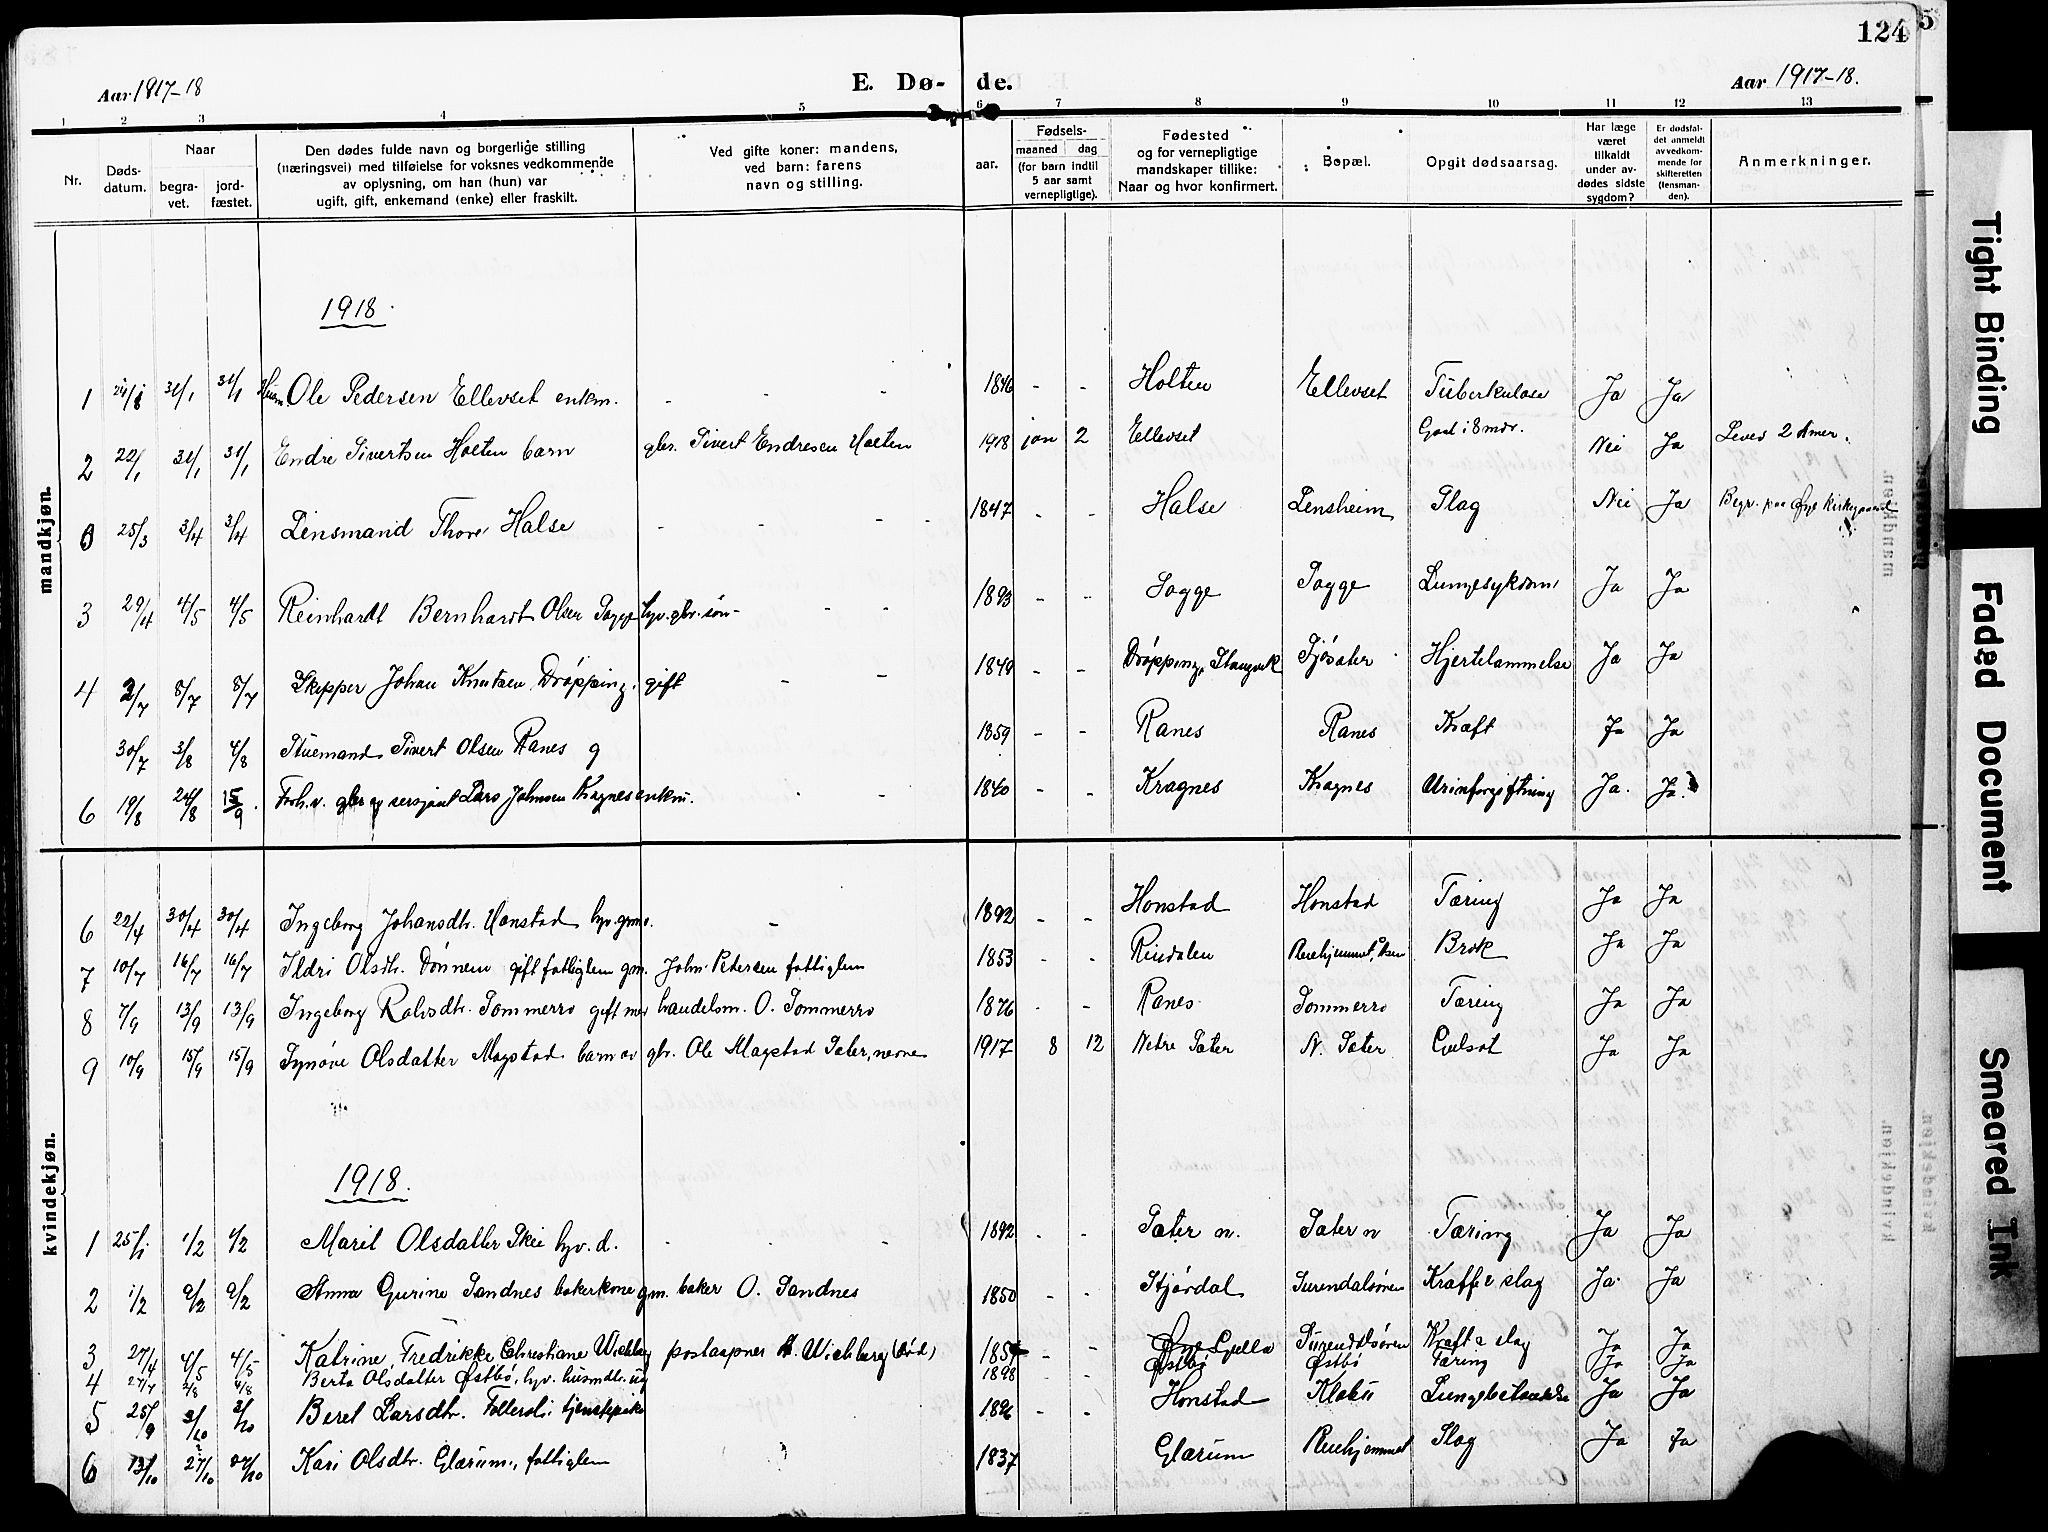 124
Aar 1917-18
E. Dø-
de.
Aar 1917-18.
1 2 3 4 5 6 7 8 9 10 11 12 13
Nr.
Døds-
datum.
Naar
begra-
vet.
jord-
fæstet.
Den dødes fulde navn og borgerlige stilling
(næringsvei) med tilføielse for voksnes vedkommende
av oplysning, om han (hun) var
ugift, gift, enkemand (enke) eller fraskilt.
Ved gifte koner: mandens,
ved barn: farens
navn og stilling.
aar.
Fødsels-
maaned dag
(for barn indtil
5 aar samt
vernepligtige).
Fødested
og for vernepligtige
mandskaper tillike:
Naar og hvor konfirmert.
Bopæl.
Opgit dødsaarsag.
Har læge
været
tilkaldt
under av-
dødes sidste
sygdom?
Er dødsfal-
det anmeldt
av vedkom-
mende for
skifteretten
(lensman-
den).
Anmerkninger.
mandkjøn.
1918.
1 31/1 31/1 Ole Pedersen Ellevset enkm. - - 1846 - - Holten Ellevset Tuberkulose Ja Ja
2 22/1 31/1 31/1 Endre Sivertsen Holten barn gbr. Sivert Endresen Holten 1918 jan 2 Ellevset Nei Ja Leved 2 timer.
25/3 3/4 3/4 Lensmand Thore Halse - - - 1847 - - Halse Lensheim Slag Nei Ja Begr. paa Øye kirkegaard
3 29/4 4/5 4/5 Reinhardt Bernhardt Olsen Sogge hjv. gbr. søn - - - 1893 - - Sogge Sogge Lungesykdom Ja Ja
4 2/7 8/7 8/7 Skipper Johan Knutsen Drøpping. gift - - 1849 - - Drøpping, Stangvik Sjøsæter Hjertelammelse Ja Ja
30/7 3/8 4/8 Stuemand Sivert Olsen Ranes g 1859 - - Ranes Ranes Kræft Ja Ja
6 19/8 24/8 15/9 Forh.v. gbr og sersjant Lars Johnsen Kragnes enkm. - - 1840 - - Kragnes Kragnes Urinforgiftning Ja. Ja.
kvindekjøn.
6 22/4 30/4 30/4 Ingeborg Johansdtr. Honstad hjv. gm. - 1892 - - Honstad Honstad Tæring Ja Ja
7 10/7 16/7 16/7 Ildri Olsdtr. Dønnem gift fattiglem gm. John Petersen fattiglem 1853 - - Rindalen Pleiehjemmet, Åsen Brok Ja Ja
8 7/9 13/9 13/9 Ingeborg Rolvsdtr. Sommerro gift med handelsm. O. Sommerro 1876 - - Ranes Sommerro Tæring Ja Ja
9 10/9 15/9 15/9 Synøve Olsdatter Magstad barn av gbr. Ole Magstad Sæter, nedre 1917 8 12 Nedre Sæter N. Sæter Gulsot Ja Ja
1918.
1 25/1 1/2 1/2 Marit Olsdatter Skei hjv. d. - - - 1892 - - Sæter n. Sæter n Tæring Ja Ja
2 1/2 9/2 9/2 Anna Gurine Sandnes bakerkone gm. baker O. Sandnes 1850 - - Stjørdal Surendalsøren Kræft & slag Ja. Ja
3 27/4 4/5 4/5 Katrine Fredrikke Christiane Wichberg postaapner Wichberg (død) - - Surendalsøren Kræft & slag Ja Ja
4 27/7 2/8 4/8 Berta Olsdatter Østbø, hjv. husmdtr. ug 1898 - - Østbø Østbø Tæring Ja Ja
5 25/9 3/10 3/10 Beret Larsdtr. Tellesli: tjenestepike 1896 - - Honstad Klæbu Lungebetændelse Ja Ja
6 13/10 27/10 27/10 Kari Olsdtr. Glærum, fattiglem 1837 Glærum Pleiehjemmet Slag Ja Ja
Tight Binding
Faded Document
Smeared Ink